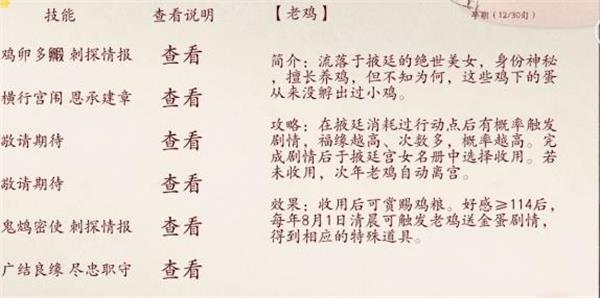 技能 查看说明 【老鸡】 年期（12/30旬）
鸡卵多毈 刺探情报 查看
横行宫闱 恩承建章 查看
敬请期待 查看
敬请期待 查看
鬼鸩密使 刺探情报 查看
广结良缘 尽忠职守 查看
简介：流落于掖廷的绝世美女，身份神秘
，擅长养鸡，但不知为何，这些鸡下的蛋
从来没孵出过小鸡。
攻略：在掖廷消耗过行动点后有概率触发
剧情，福缘越高、次数多，概率越高。完
成剧情后于掖廷宫女名册中选择收用。若
未收用，次年老鸡自动离宫。
效果：收用后可赏赐鸡粮。好感≥114后，
每年8月1日清晨可触发老鸡送金蛋剧情，
得到相应的特殊道具。